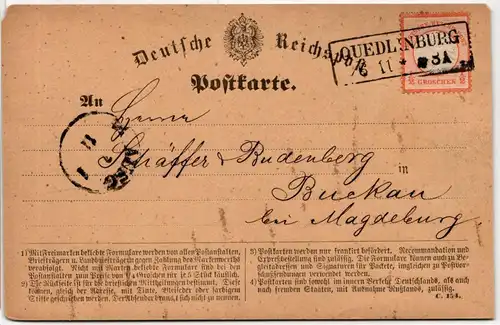 Deutsche Reichspost
QUEDLINBURG
6 11
GROSCHEN
Postkarte.
An
Herrn
Schäffer & Budenberg
in
Buckau
bei Magdeburg
1) Mit Freimarken beklebte Formulare werden von allen Postanstalten,
Briefträgern u. Landbriefträgern gegen Zahlung des Nennwerths
verabfolgt. Nicht mit Marken beklebte Formulare sind bei den
Postanstalten zum Preise von ¼ Groschen für je 5 Stück käuflich.
2) Die Rückseite ist für die schriftlichen Mittheilungen bestimmt. Diese
können, gleich der Adresse, mit Tinte, Bleistift oder farbigem
Stifte geschrieben werden. Der Absender braucht sich nicht zu nennen.
3) Postkarten werden nur frankirt befördert. Recommandation und
Expreßbestellung sind zulässig. Die Formulare können auch zu Be-
gleitadressen und Signaturen für Packete, imgleichen zu Postvor-
schußsendungen verwendet werden.
4) Postkarten sind sowohl im innern Verkehr Deutschlands, als auch
nach fremden Staaten, mit Ausnahme Rußlands, zulässig.
C. 154.